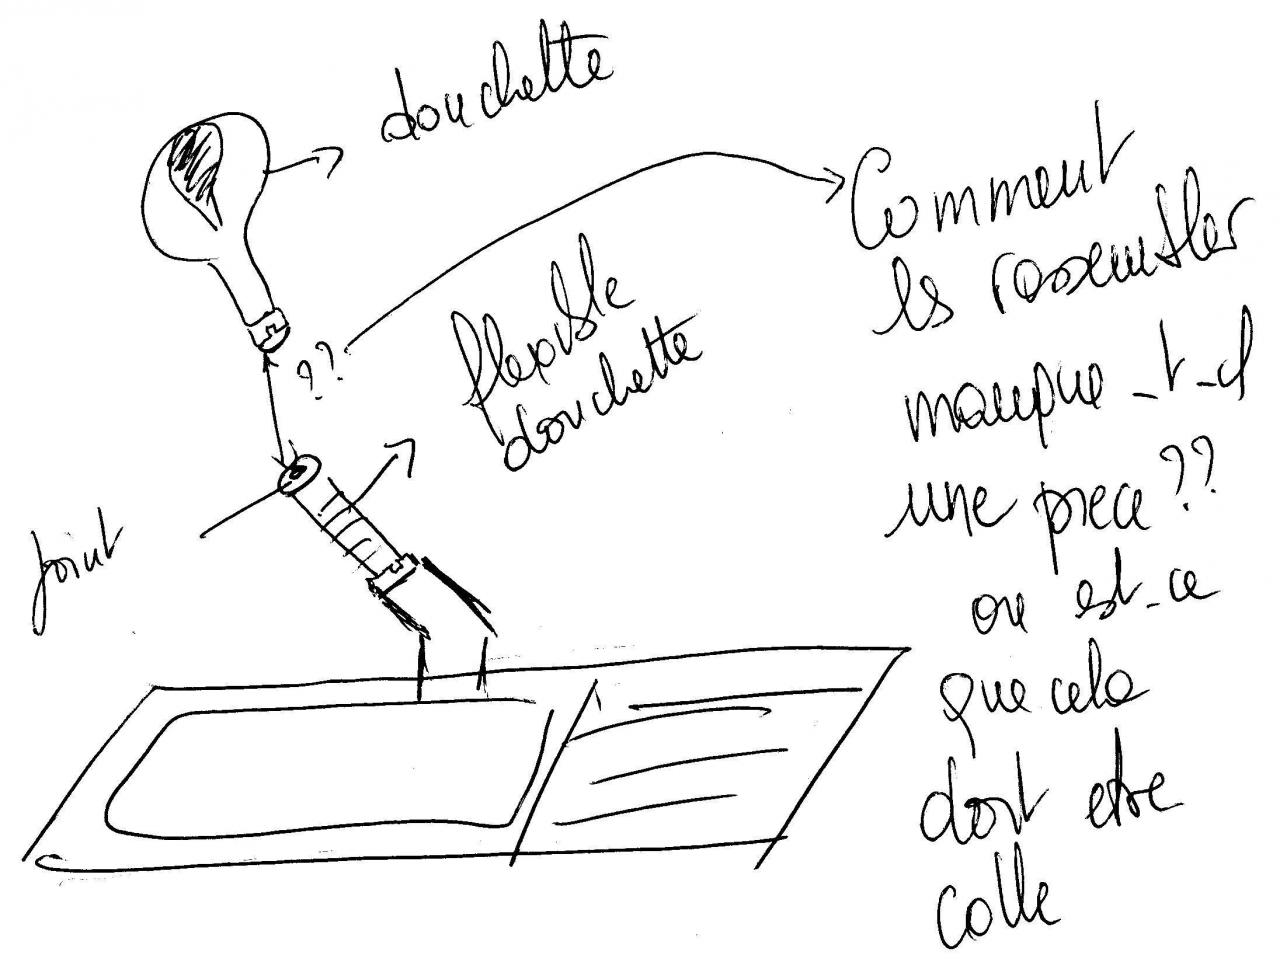 douchette
Comment
les rassembler
manque-t-il
une piece ??
ou est-ce
que cela
doit etre
colle
??
flexible
douchette
Joint